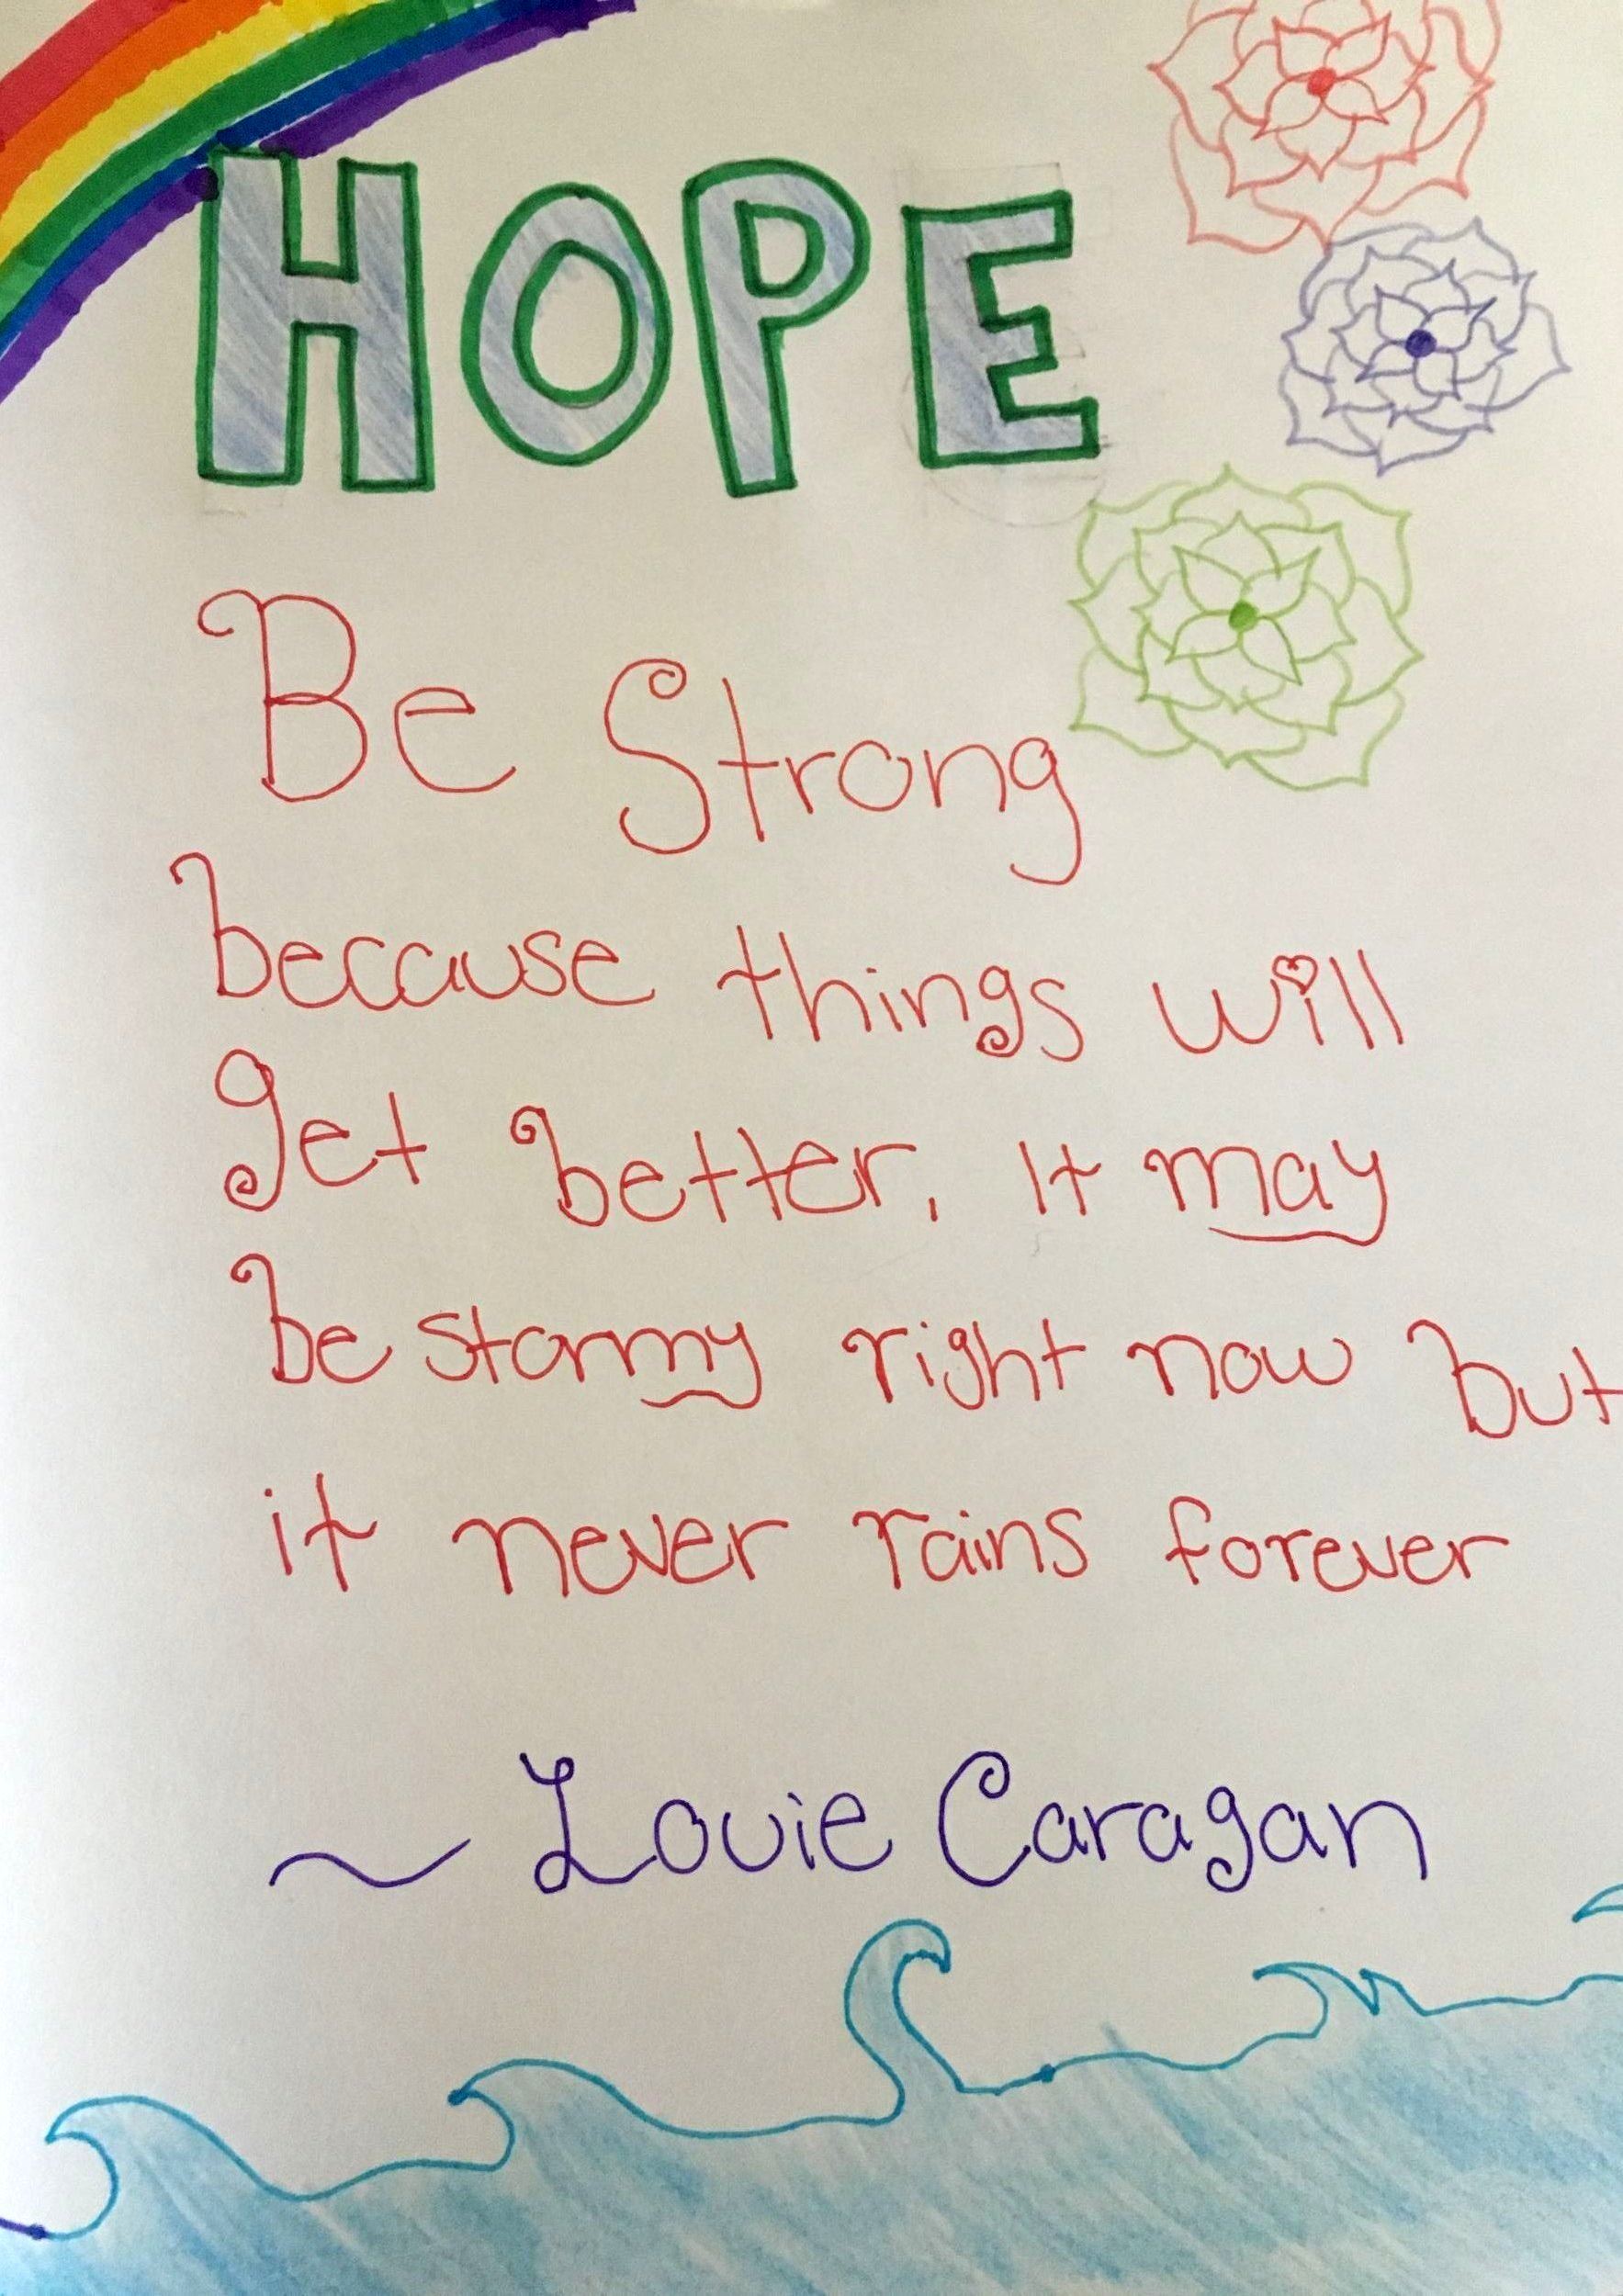 HOPE
Be Strong
because things will
get better, It may
be stormy right now but
it never rains forever
~ Louie Caragan